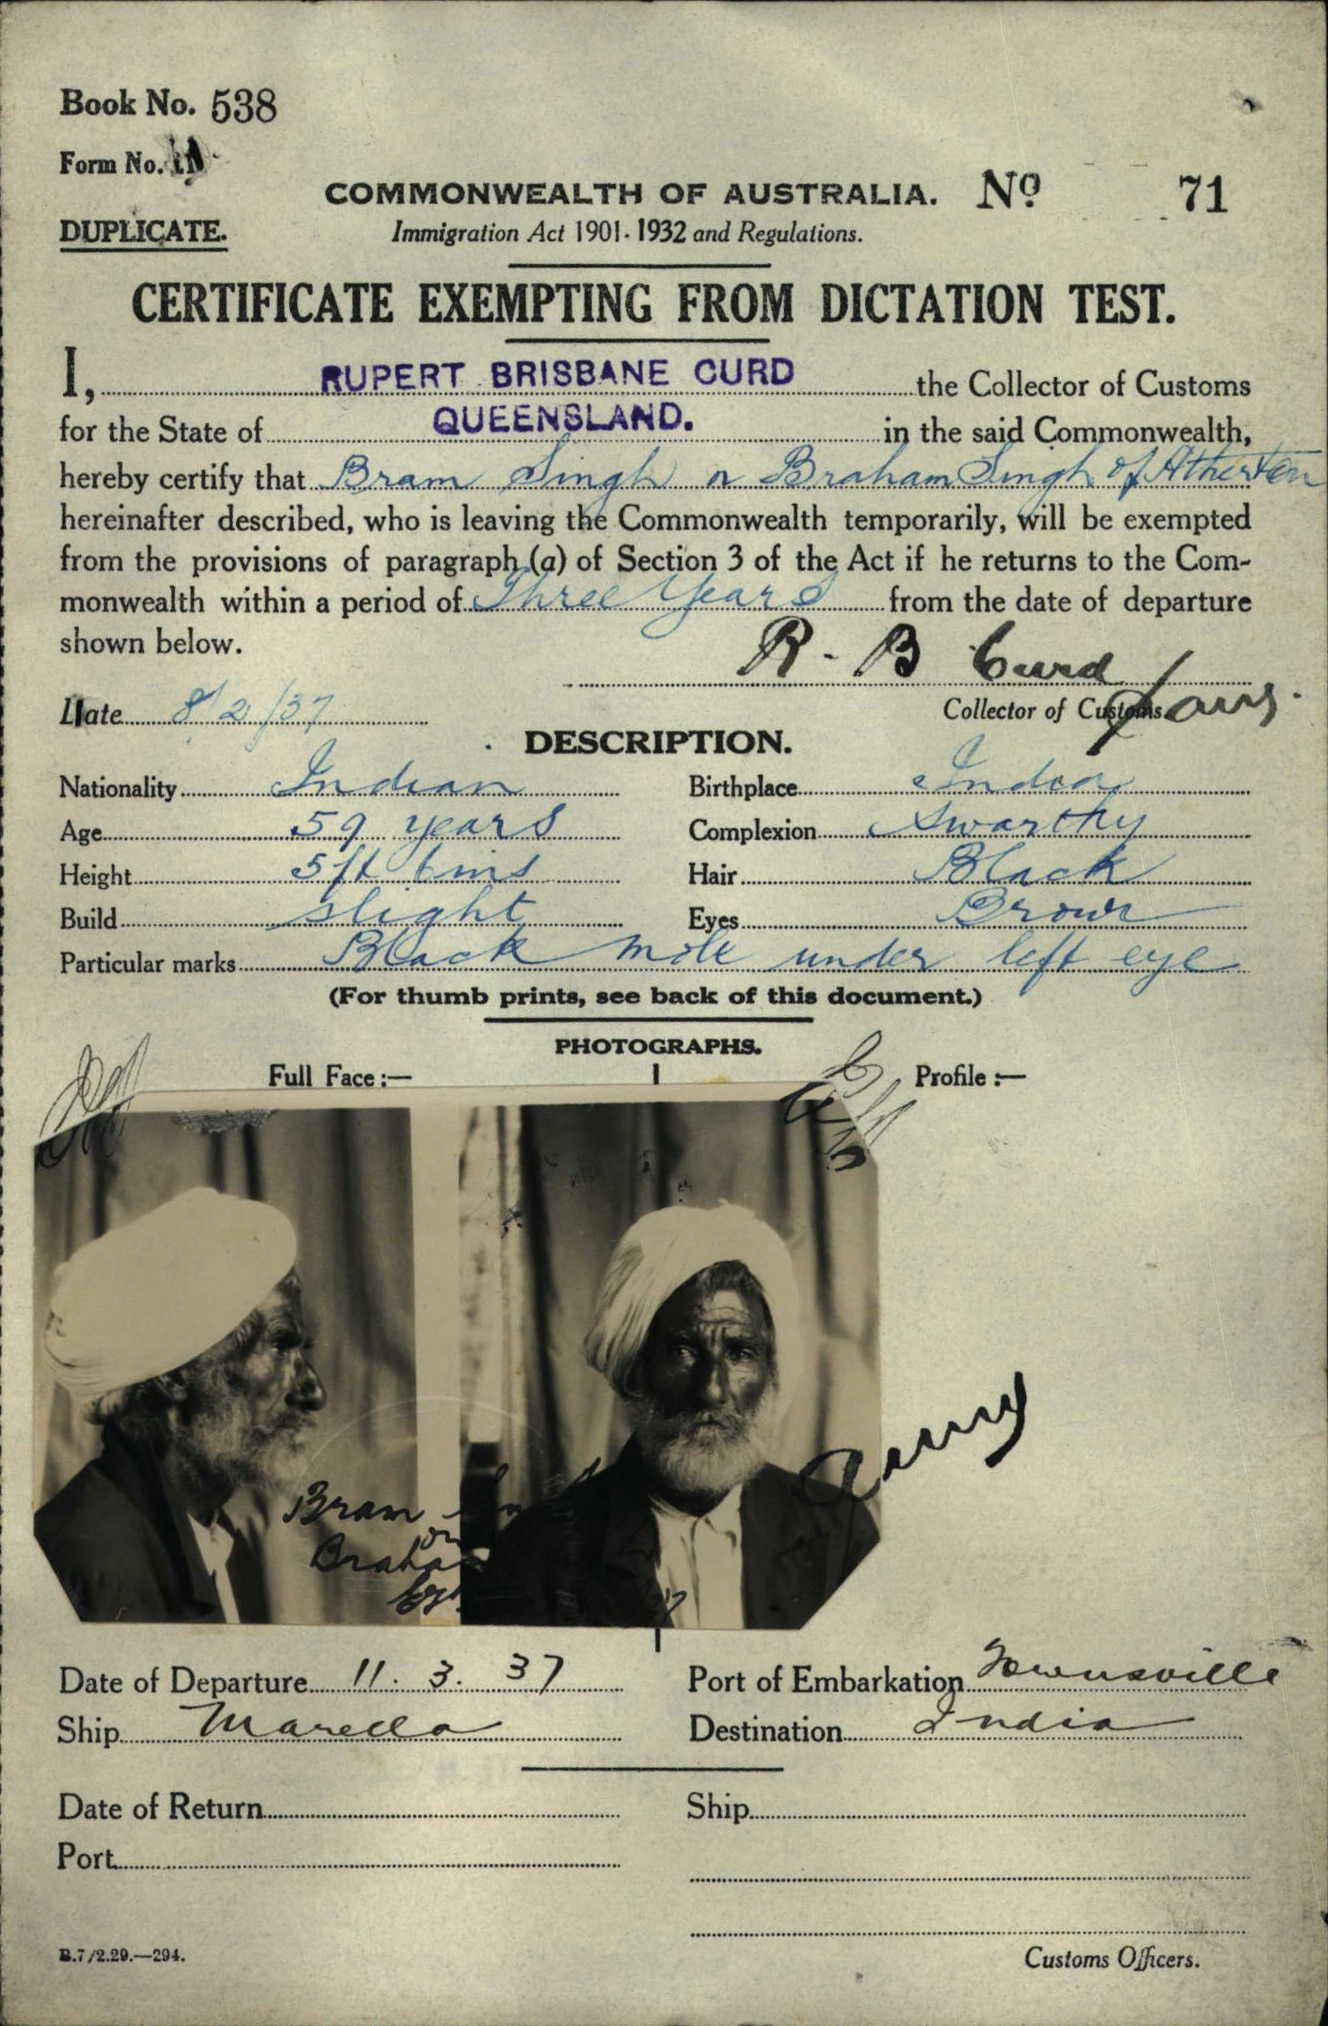 Book No. 538
Form No.
DUPLICATE.
COMMONWEALTH OF AUSTRALIA. No. 71
Immigration Act 1901-1932 and Regulations.
CERTIFICATE EXEMPTING FROM DICTATION TEST.
I, RUPERT BRISBANE CURD the Collector of Customs
for the State of QUEENSLAND. in the said Commonwealth,
hereby certify that Bram Singh or Braham Singh of Atherton
hereinafter described, who is leaving the Commonwealth temporarily, will be exempted
from the provisions of paragraph (a) of Section 3 of the Act if he returns to the Com-
monwealth within a period of Three Years from the date of departure
shown below.
R. B Curd
Date 8/2/37
Collector of Customs.
DESCRIPTION.
Nationality Indian Birthplace India
Age 59 years Complexion Swarthy
Height 5ft 6ins Hair Black
Build slight Eyes Brown
Particular marks Black mole under left eye
(For thumb prints, see back of this document.)
PHOTOGRAPHS.
Full Face :— Profile :—
Bram
or
Braha
Date of Departure 11. 3. 37 Port of Embarkation Townsville
Ship Marella Destination India
Date of Return Ship
Port
B.7/2.29.—294.
Customs Officers.